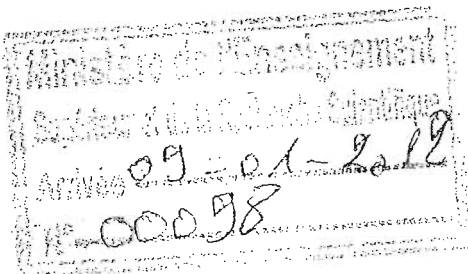 Ministère de l'Enseignement
Supérieur et de la Recherche Scientifique
Arrivée 09-01-2012
N° 00098